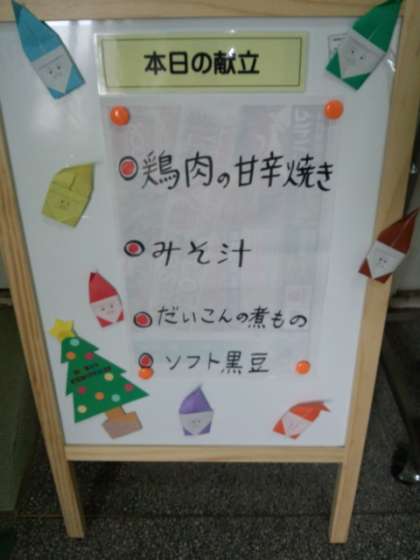 本日の献立
鶏肉の甘辛焼き
みそ汁
だいこんの煮もの
ソフト黒豆